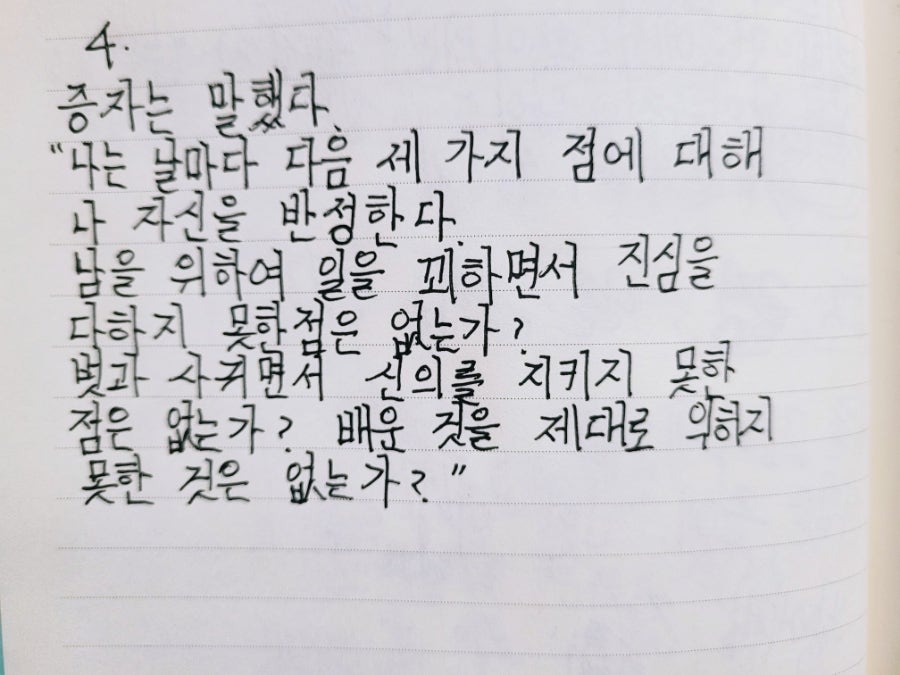 4.
증자는 말했다.
"나는 날마다 다음 세 가지 점에 대해
나 자신을 반정한다.
남을 위하여 일을 꾀하면서 진심을
다하지 못한점은 없는가?
벗과 사귀면서 신의를 지키지 못한
점은 없는가? 배운 것을 제대로 익히지
못한 것은 없는가?"